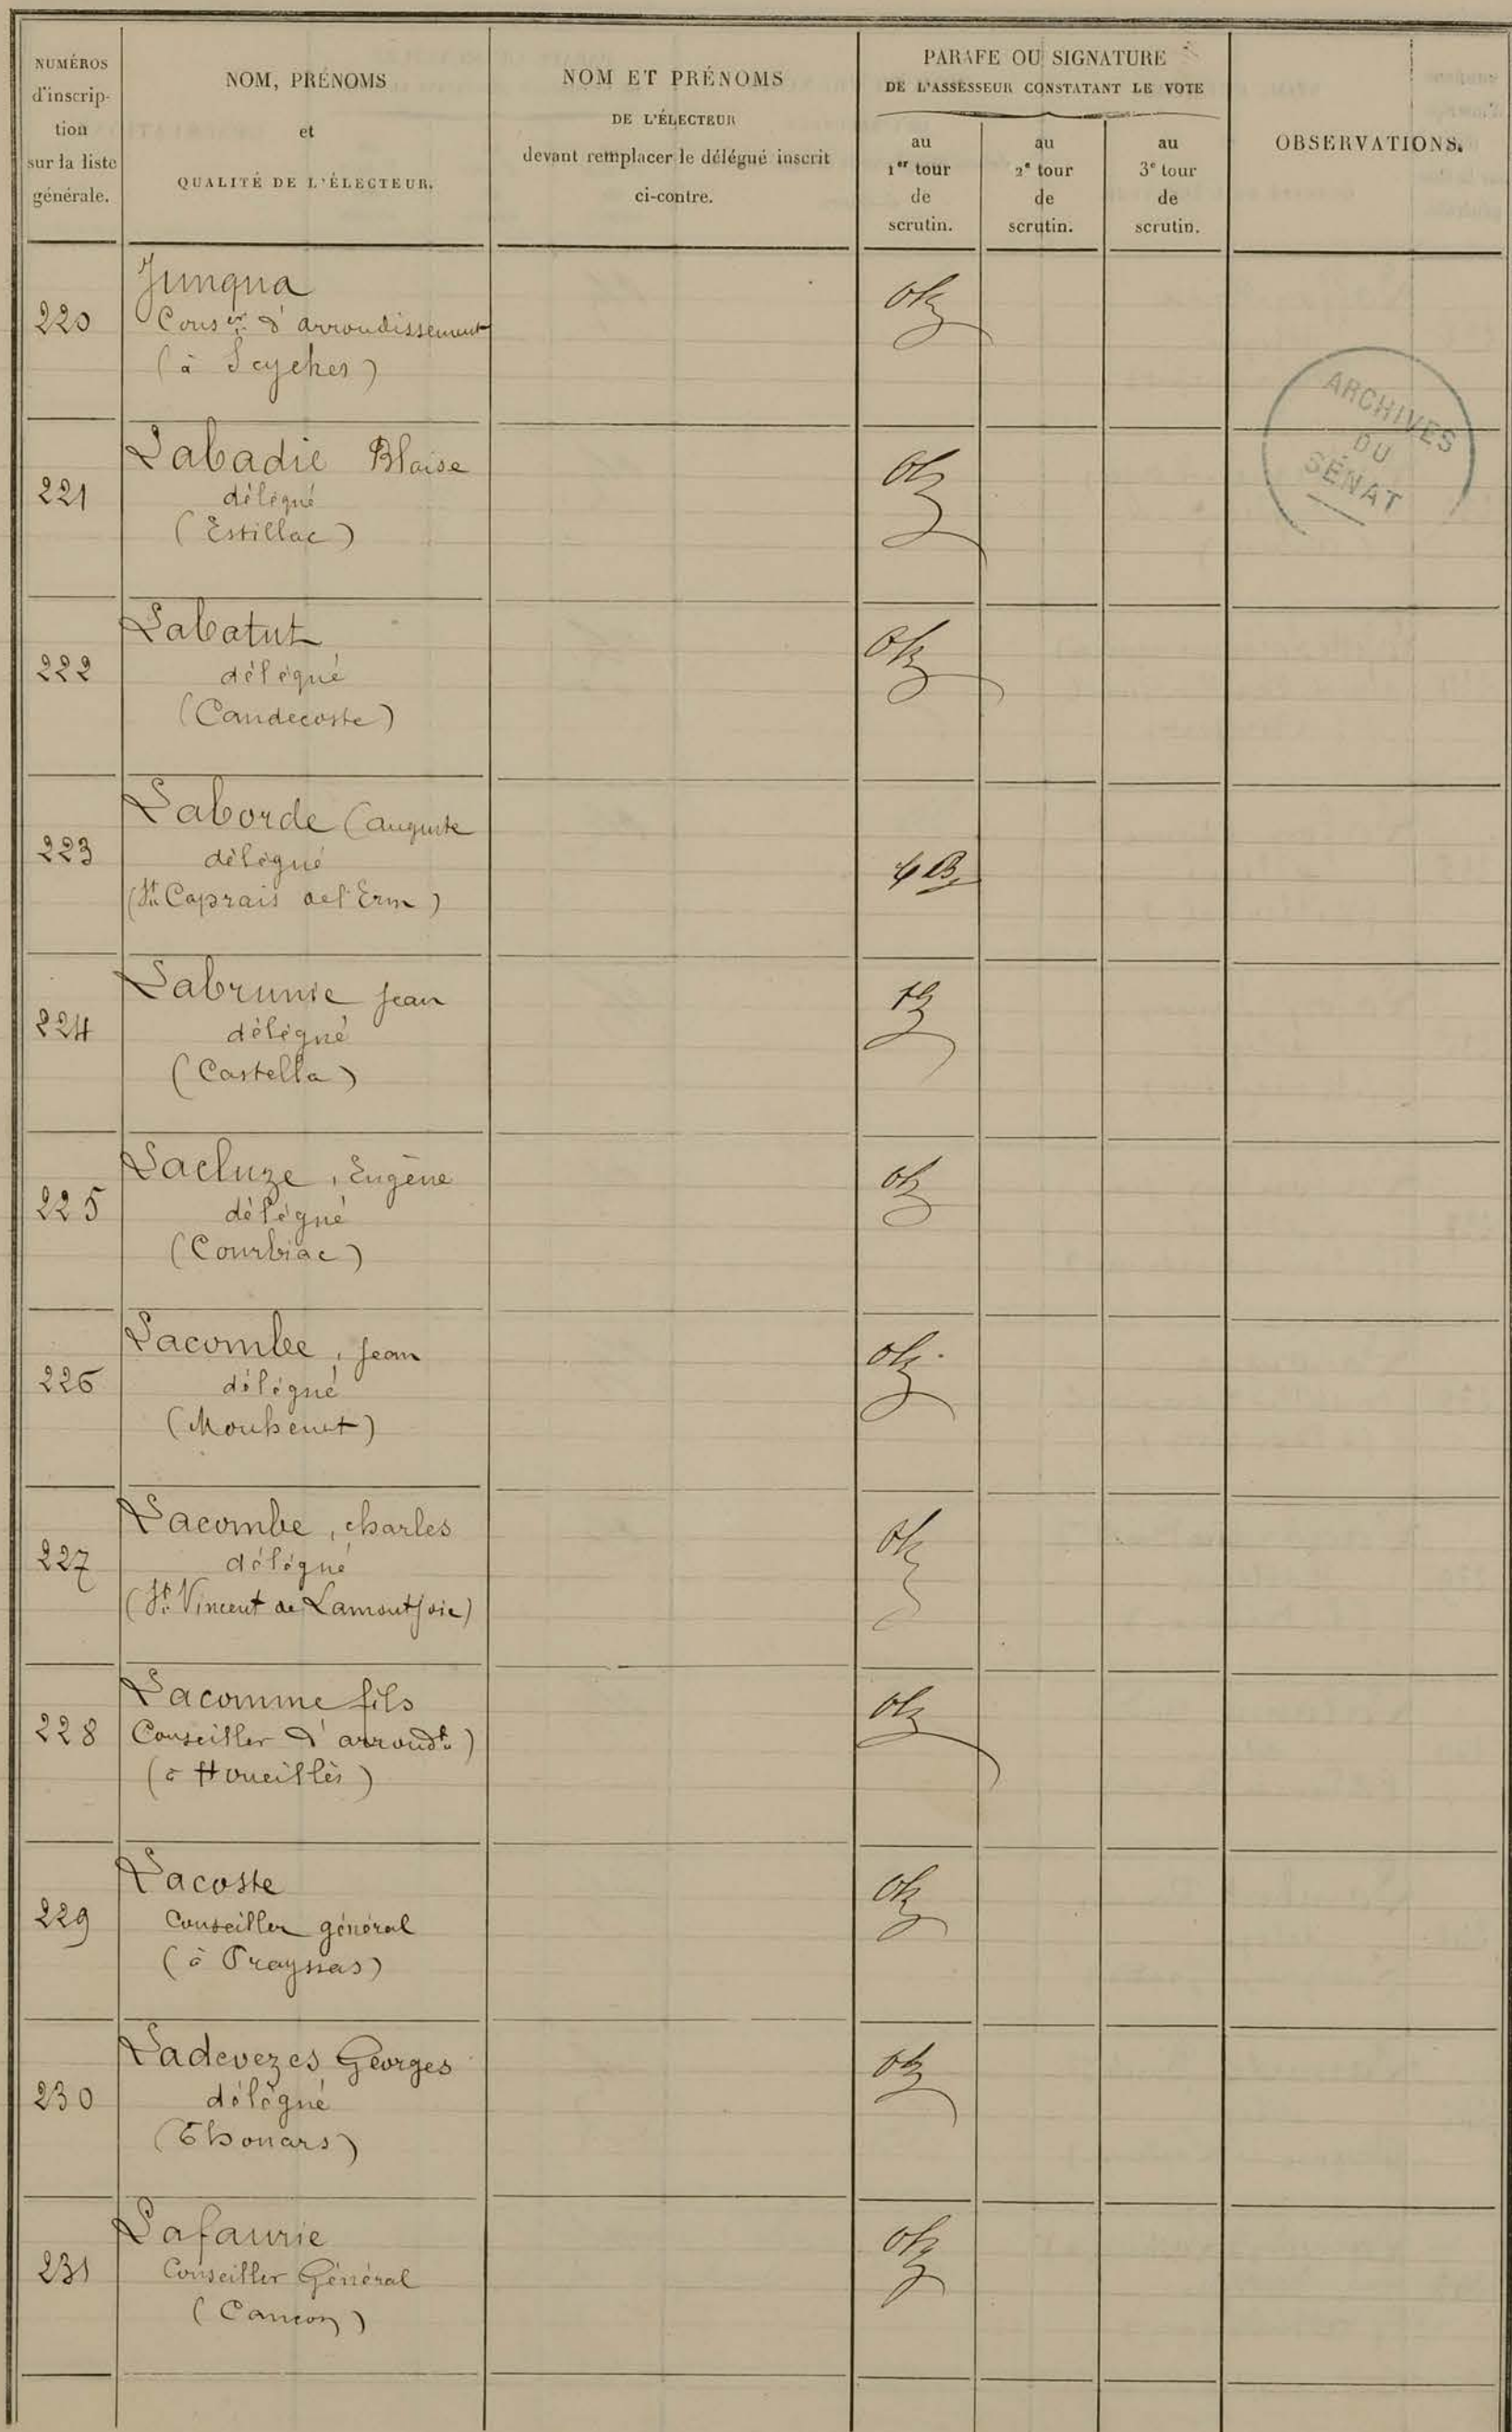 NUMÉROS
d'inscrip-
tion
sur la liste
générale.
NOM, PRÉNOMS
et
QUALITÉ DE L'ÉLECTEUR.
NOM ET PRÉNOMS
DE L'ÉLECTEUR
devant remplacer le délégué inscrit
ci-contre.
PARAFE OU SIGNATURE
DE L'ASSESSEUR CONSTATANT LE VOTE
au
1er tour
de
scrutin.
au
2e tour
de
scrutin.
au
3e tour
de
scrutin.
OBSERVATIONS.
220
Junqua
Conser d'arrondissement
(à Seyches)
ARCHIVES
DU
SÉNAT
221
Labadie Blaise
délégué
(Estillac)
222
Labatut
délégué
(Caudecoste)
223
Laborde (auguste
délégué
(St Caprais de l'Erm)
224
Labrunie Jean
délégué
(Castella)
225
Lacluze, Eugène
délégué
(Courbiac)
226
Lacombe, Jean
délégué
227
Lacombe, charles
délégué
(St Vincent de Lamontjoie)
228
Lacomme fils
Conseiller d'arrondt)
(à Houeillès)
229
Lacoste
Conseiller général
(à Prayssas)
230
Ladevezes Georges
délégué
(Thouars)
231
Lafaurie
Conseiller Général
(Cancon)